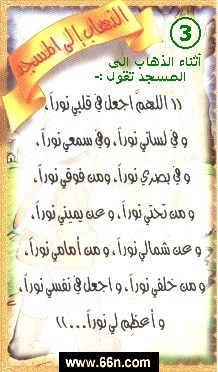 الذهاب إلى المسجد
3
أثناء الذهاب إلى
المسجد تقول :-
(( اللهمَّ اجعل في قلبي نوراً،
وفي لساني نوراً، وفي سمعي نوراً،
وفي بصري نوراً، ومن فوقي نوراً،
ومن تحتي نوراً، وعن يميني نوراً،
وعن شمالي نوراً، ومن أمامي نوراً،
ومن خلفي نوراً، واجعل في نفسي نوراً،
وأعظِم لي نوراً...))
www.66n.com